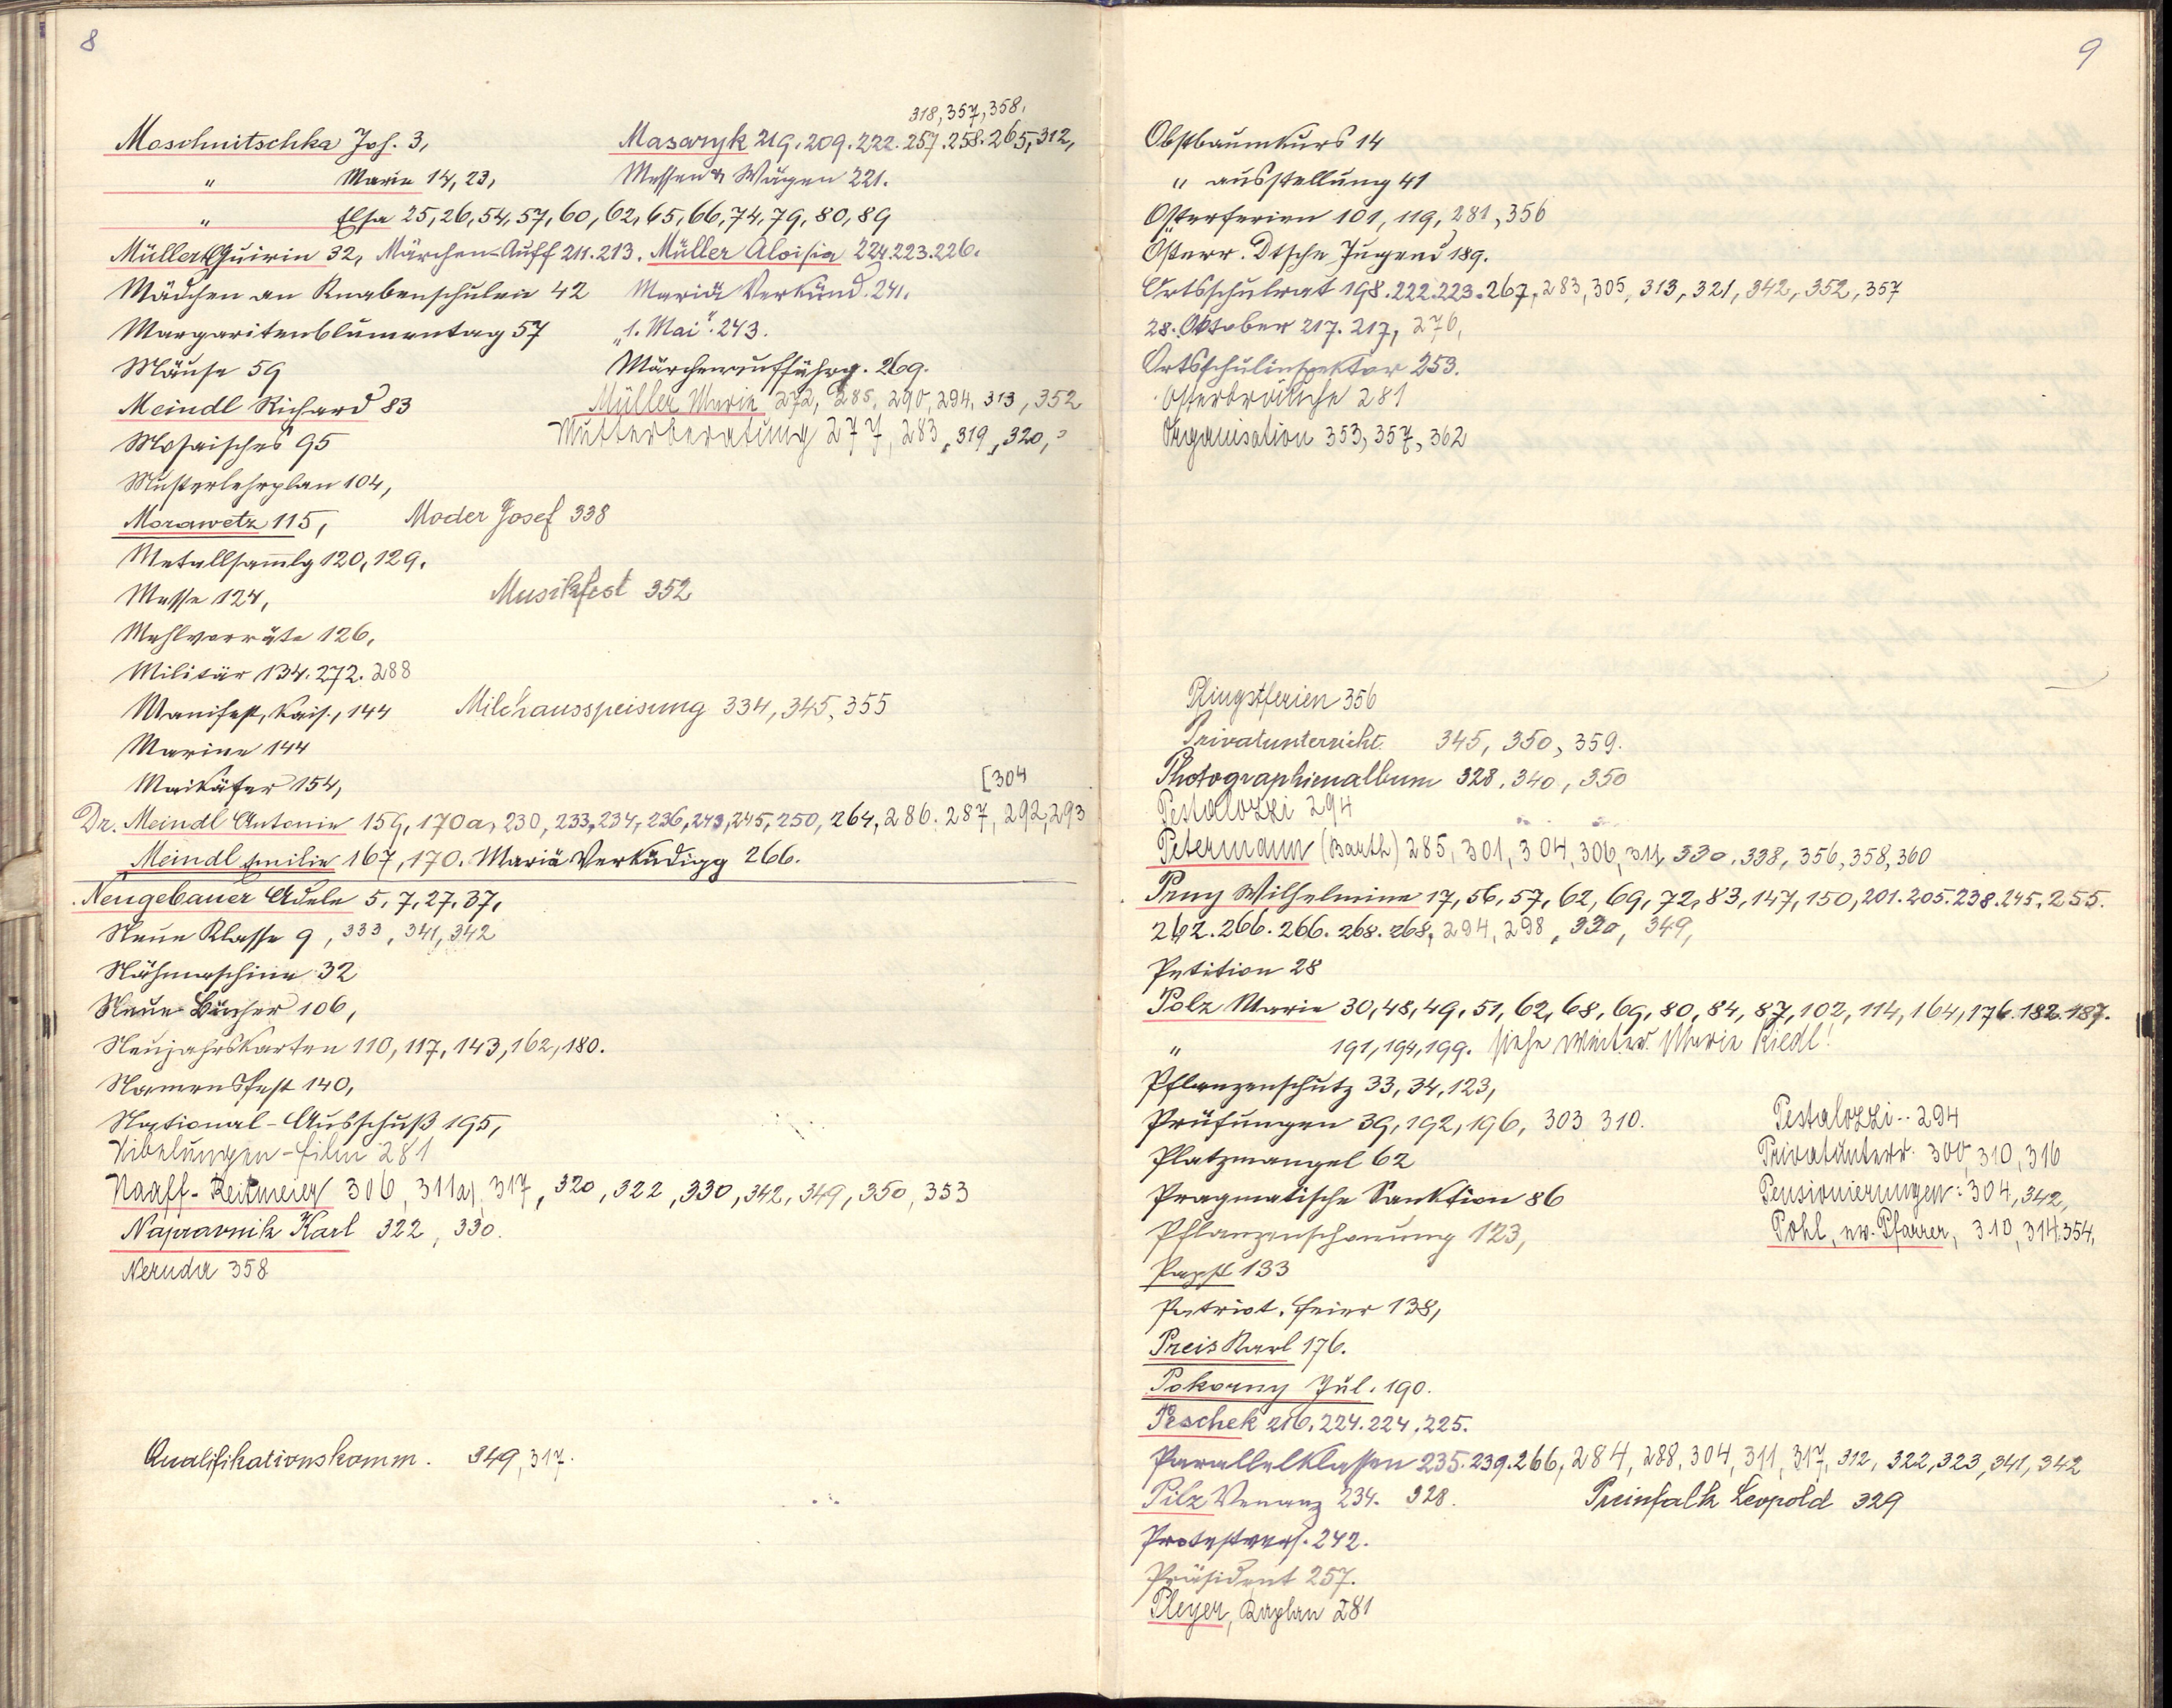 8
318, 357, 358.
Moschnitschka Jos. 3,
Masaryk 219. 209. 222. 257. 258. 265, 312,
" Marie 14, 23,
Messen & Wägen 221.
" Elsa 25, 26, 54, 57, 60, 62, 65, 66, 74, 79, 80, 89
Müller Quirin 32, Märchen-Auff 211. 213. Müller Aloisia 224. 223. 226.
Mädchen an Knabenschulen 42
Mariä Verkünd. 241.
Margaritenblumentag 57
"1. Mai". 243.
Mäuse 59
Märchenaufführg. 269.
Meindl Richard 83
Müller Marie 272, 285, 290, 294, 313, 352
Mosaisches 95
Mutterberatung 277, 283, 319, 320,
Musterlehrplan 104,
Morawetz 115,
Moder Josef 338
Metallsam̄lg 120, 129.
Messe 124,
Musikfest 352
Mehlvorräte 126,
Militär 134. 272. 288
Manifest, Kais., 144
Milchausspeisung 334, 345, 355
Marine 144
Maikäfer 154,
[304
Dr. Meindl Antonie 159, 170a, 230, 233, 234, 236, 243, 245, 250, 264, 286. 287, 292, 293
Meindl Emilie 167, 170. Mariä Verkündigg 266.
Neugebauer Adele 5, 7, 27. 37,
Neue Klasse 9, 333, 341, 342
Nähmaschine 32
Neue Bücher 106,
Neujahrskarten 110, 117, 143, 162, 180.
Namensfest 140,
National-Ausschuß 195,
Nibelungen-film 281
Naaff-Reitmeier 306, 311a), 317, 320, 322, 330, 342, 349, 350, 353
Napravnik Karl 322, 330.
Neruda 358
Qualifikationskomm. 349, 317.
9
Obstbaumkurs 14
" ausstellung 41
Osterferien 101, 119, 281, 356
Österr. Dtsche Jugend 189.
Ortsschulrat 198. 222. 223. 267, 283, 305, 313, 321, 342, 352, 357
28. Oktober 217. 217, 276,
Ortsschulinspektor 253.
Osterbräuche 281
Organisation 353, 357, 362
Pfingstferien 356
Privatunterricht 345, 350, 359.
Photographienalbum 328, 340, 350
Pestalozzi 294
Petermann (Barth) 285, 301, 304, 306, 311, 330, 338, 356, 358, 360
Pruy Wilhelmine 17, 56, 57, 62, 69, 72, 83, 147, 150, 201. 205. 238. 245. 255.
262. 266. 266. 268. 268, 294, 298, 330, 349,
Petition 28
Polz Marie 30, 48, 49, 51, 62, 68, 69, 80, 84, 87, 102, 114, 164, 176. 182. 187.
" 191, 194, 199. siehe weiter Marie Riedl!
Pflanzenschutz 33, 34, 123,
Prüfungen 39, 192, 196, 303 310.
Pestalozzi -- 294
Platzmangel 62
Privatunterr. 300, 310, 316
Pragmatische Sanktion 86
Pensionierungen: 304, 342,
Pflanzenschonung 123,
Pohl, ev. Pfarrer, 310, 314, 354,
Papst 133
Patriot. Feier 138,
Preis Karl 176.
Pokorny Jul. 190.
Peschek 216. 224. 224, 225.
Parallelklassen 235. 239. 266, 284, 288, 304, 311, 317, 312, 322, 323, 341, 342
Pilz Venanz 234. 328.
Preinfalk Leopold 329
Protestvers. 242.
Präsident 257.
Pleyer, Kaplan 281